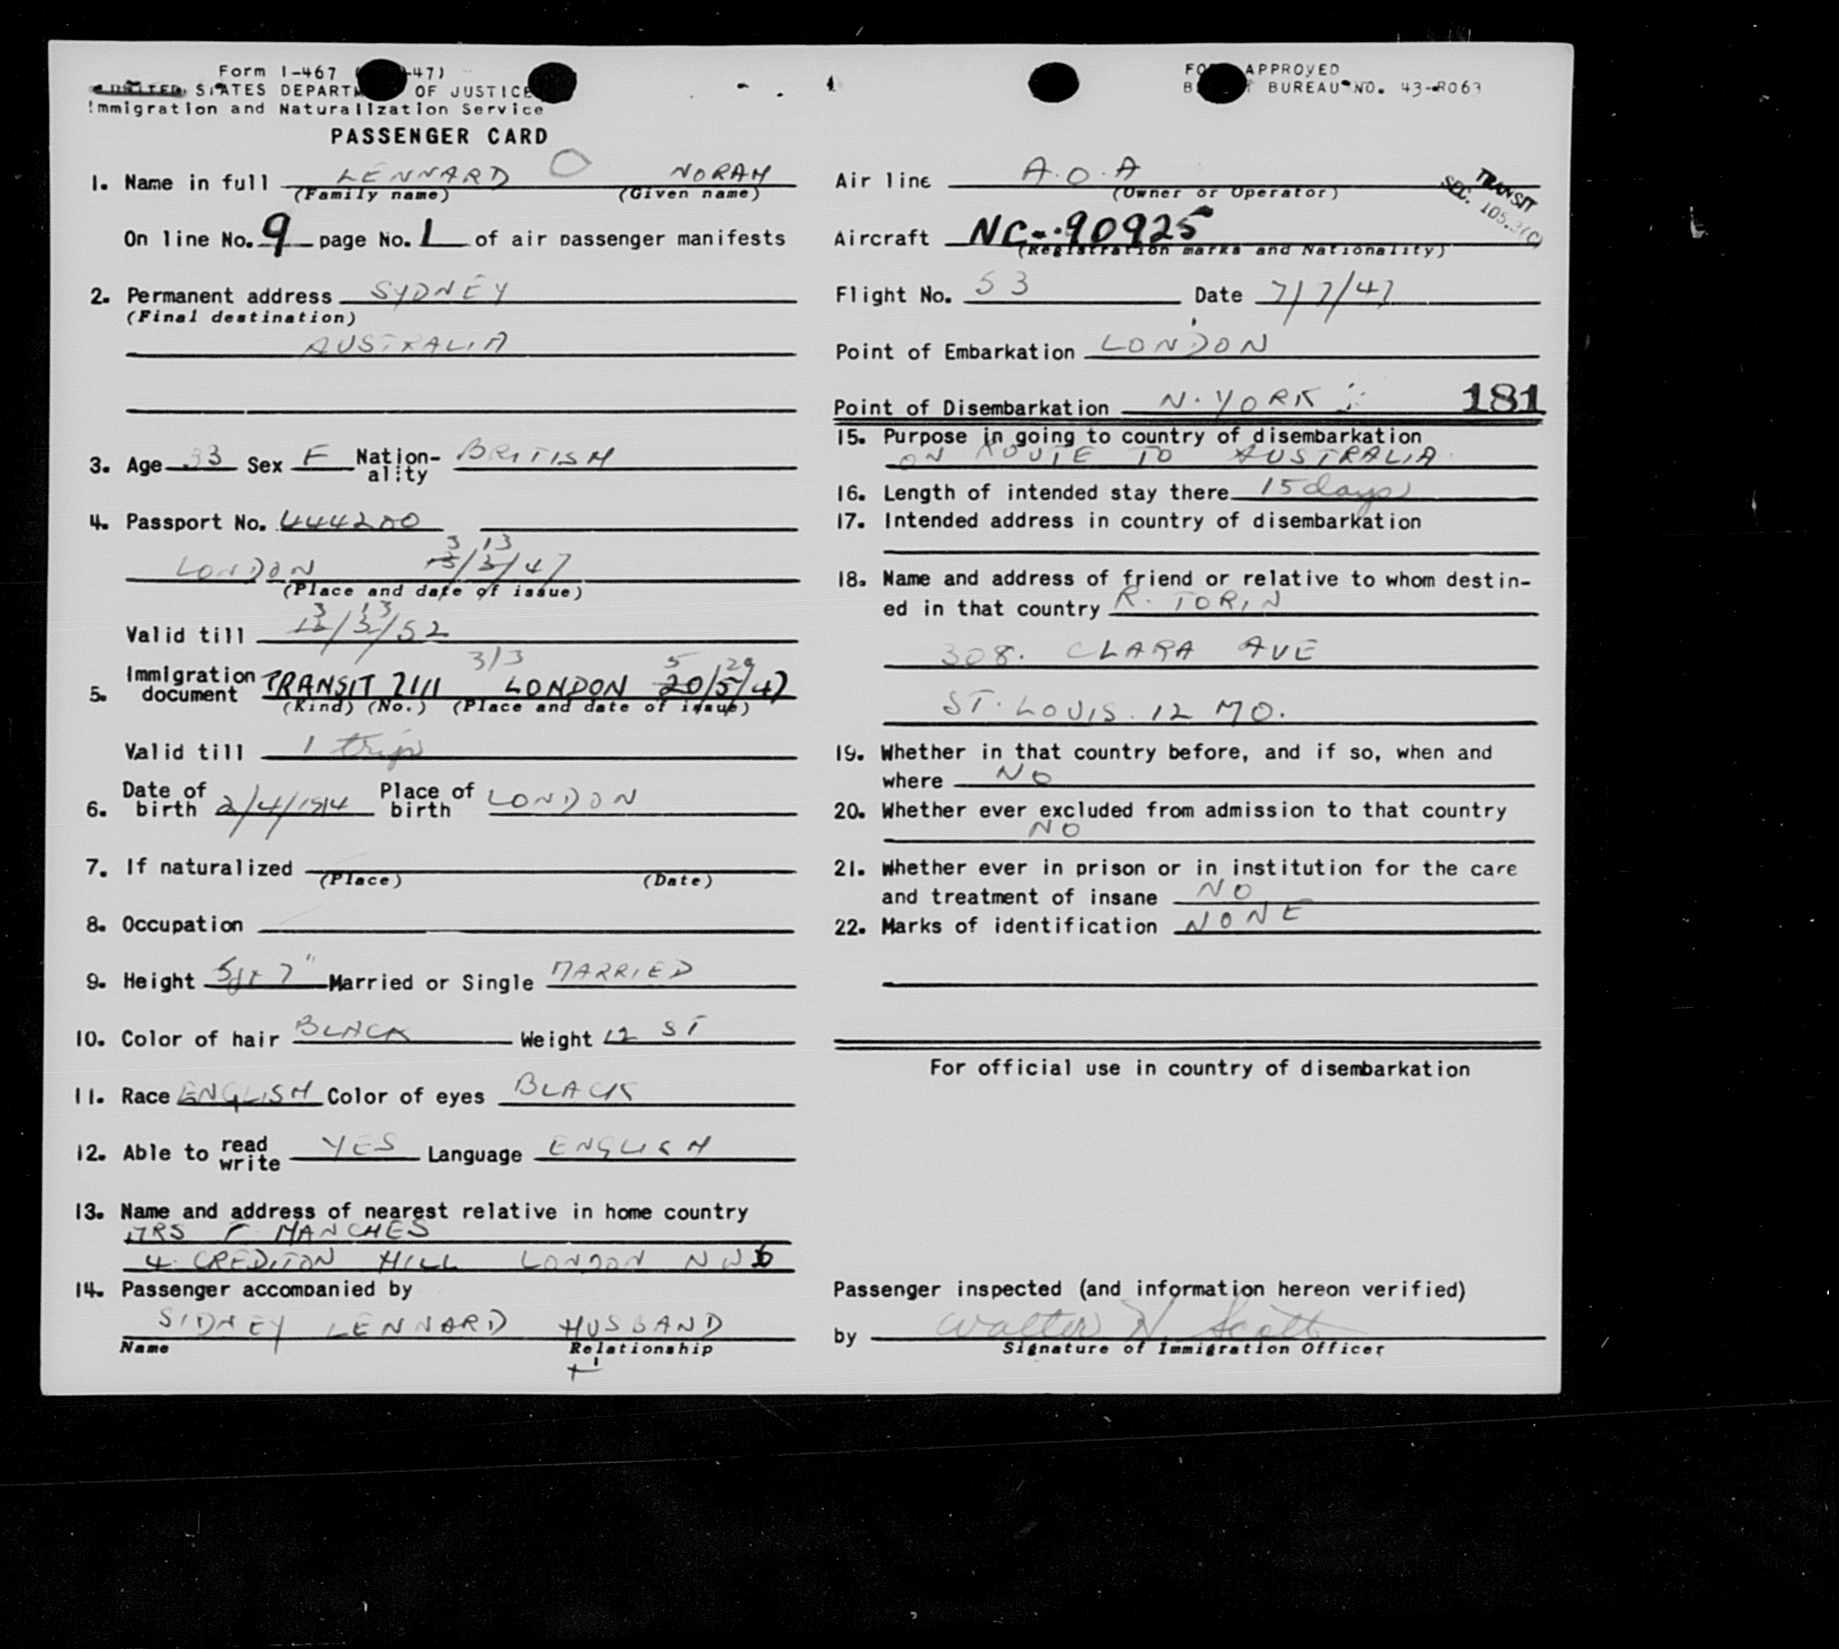 Form I-467 47)
UNITED STATES DEPARTM OF JUSTICE
Immigration and Naturalization Service
PASSENGER CARD
1. Name in full LENNARD NORAH
(Family name) (Given name)
On line No. 9 page No. 1 of air passenger manifests
2. Permanent address SYDNEY
(Final destination)
AUSTRALIA
3. Age 33 Sex F Nation-ality BRITISH
4. Passport No. 444200
3 13
LONDON 13/3/47
(Place and date of issue)
3 13
Valid till 13/3/52
3/3 5 29
5. Immigration document TRANSIT 7111 LONDON 20/5/47
(Kind) (No.) (Place and date of issue)
Valid till 1 trip
6. Date of birth 2/4/1914 Place of birth LONDON
7. If naturalized
(Place) (Date)
8. Occupation
9. Height 5ft 7" Married or Single MARRIED
10. Color of hair BLACK Weight 12 ST
11. Race ENGLISH Color of eyes BLACK
12. Able to read write YES Language ENGLISH
13. Name and address of nearest relative in home country
MRS F MANCHES
4. CREDITON HILL LONDON NW6
14. Passenger accompanied by
SIDNEY LENNARD HUSBAND
Name Relationship
APPROVED
BUREAU NO. 43-R063
Air line A.O.A
(Owner or Operator)
TRANSIT
SEC. 105.3(C)
Aircraft NC-90925
(Registration marks and Nationality)
Flight No. 53 Date 7/7/47
Point of Embarkation LONDON
Point of Disembarkation N.YORK 181
15. Purpose in going to country of disembarkation
ON ROUTE TO AUSTRALIA
16. Length of intended stay there 15 days
17. Intended address in country of disembarkation
18. Name and address of friend or relative to whom destin-
ed in that country R. TORIN
308. CLARA AVE
ST. LOUIS. 12 MO.
19. Whether in that country before, and if so, when and
where NO
20. Whether ever excluded from admission to that country
NO
21. Whether ever in prison or in institution for the care
and treatment of insane NO
22. Marks of identification NONE
For official use in country of disembarkation
Passenger inspected (and information hereon verified)
by Walter N Scott
Signature of Immigration Officer